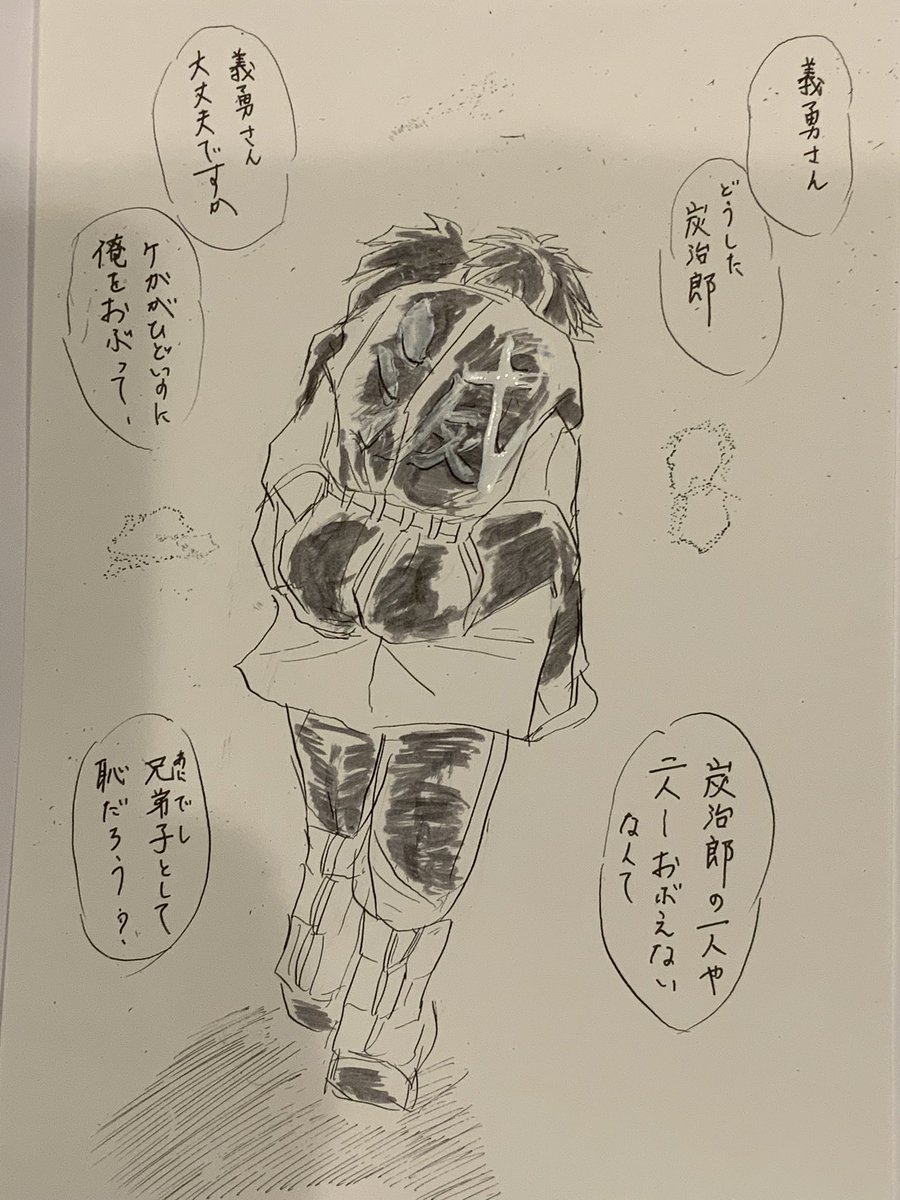 義勇さん
どうした
炭治郎
義勇さん
大丈夫ですか
ケががひどいのに
俺をおぶって、
炭治郎の一人や
二人ーおぶえない
なんて
あにでし
兄弟子として
恥だろう?
滅